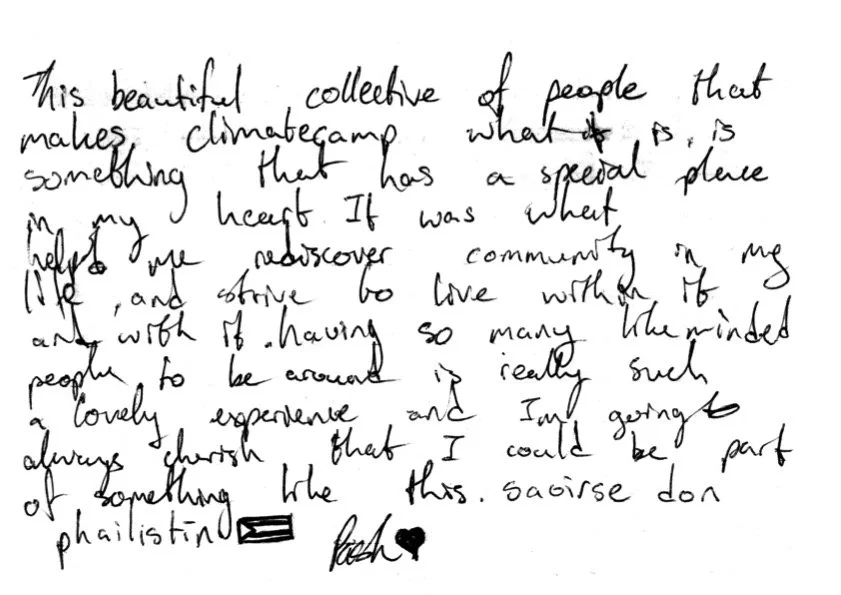 This beautiful collective of people that
makes climatecamp what is is, is
something that has a special place
in my heart. It was what
helped me rediscover community in my
life, and strive to live within it
and with it. having so many likeminded
people to be around is really such
a lovely experience and Im going to
always cherish that I could be part
of something like this. saoirse don
phailistín